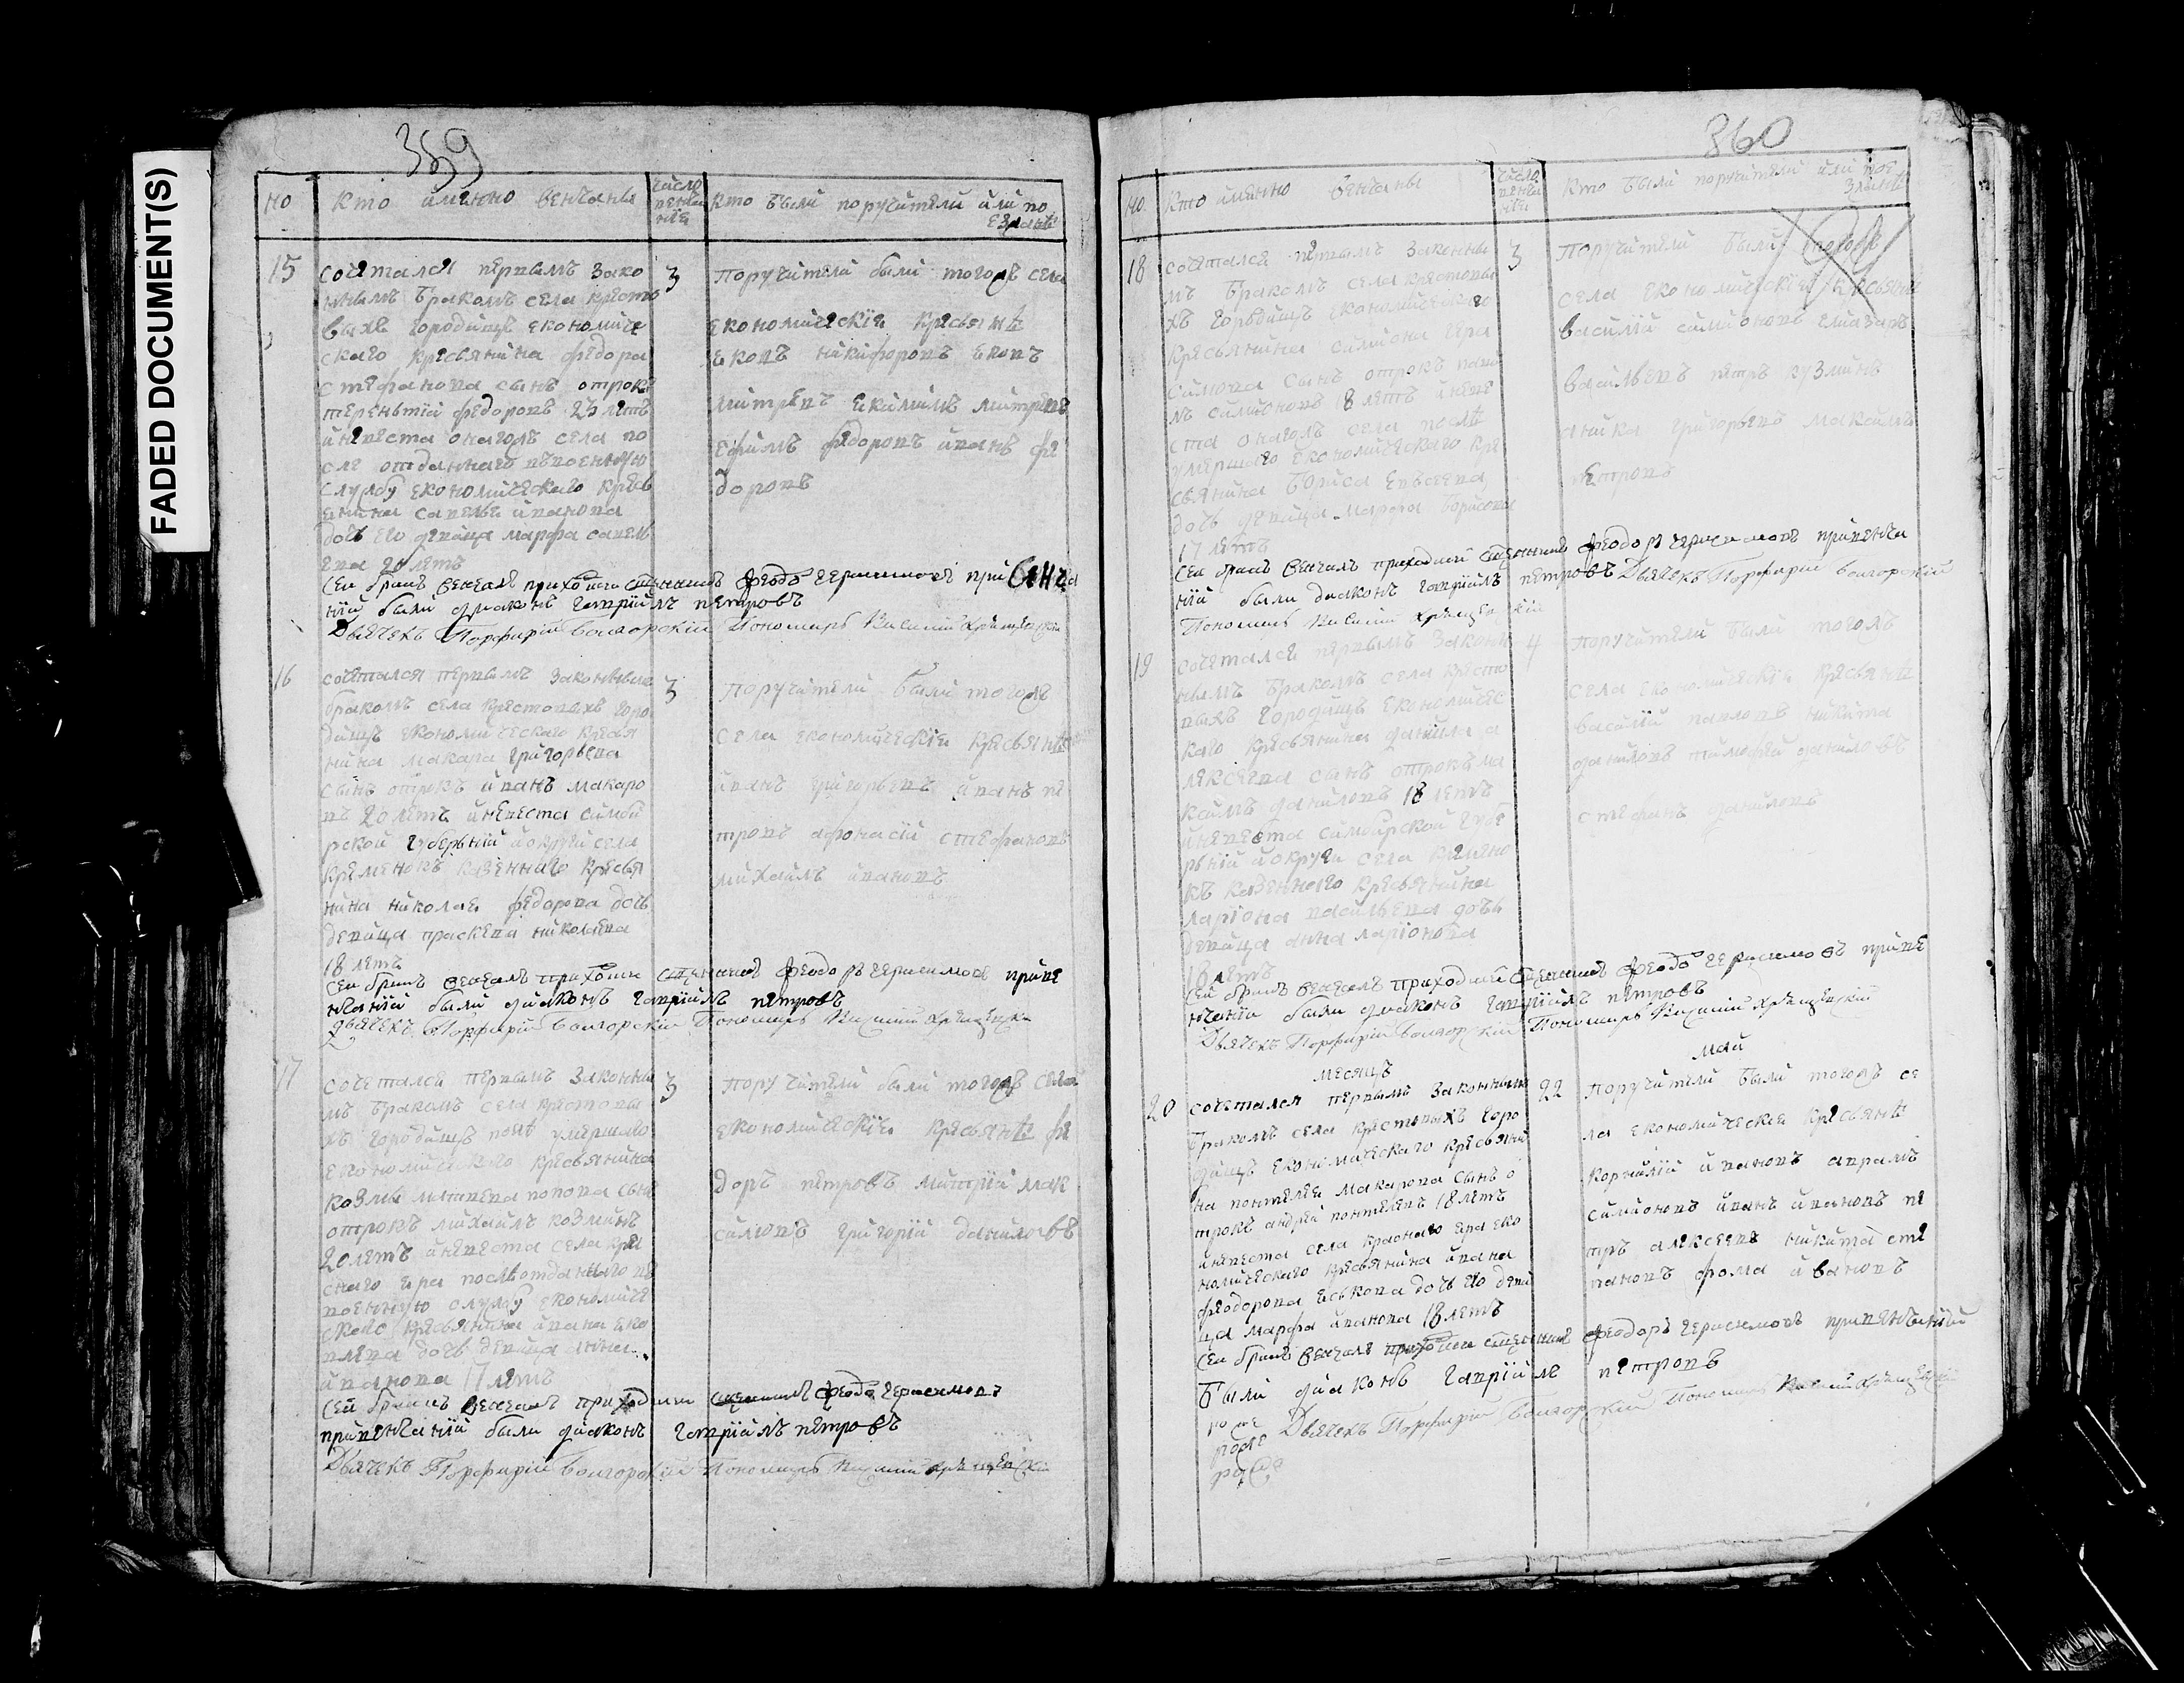 FADED DOCUMENT(S)
359
но
кто имянно венчаны
число
венча
нїя
кто были поручители или по
езжанѣ
15
сочетался первымъ зако
ннымъ бракомъ села кресто
выхъ городищъ економиче
скаго кресьянина федора
стефанова сынъ отрокъ
терентїй федоровъ 23 летъ
и невеста онагожъ села по
сле отданнаго въвоенную
службу економическаго кресь
енина савелья иванова
дочь его девица марфа савель
ева 20 летъ
3
поручители были тогожъ села
економическїе кресьянѣ
яковъ никифоровъ яковъ
митревъ екимъ митревъ
ефимъ федоровъ иванъ фе
доровъ
сей бракъ венчалъ приходский священникъ феодоръ герасимовъ при венча
нїй были дїаконъ гаврїилъ петровъ
Дьячекъ Порфирїй болгорскїй Пономарь
16
сочетался первымъ законнымъ
бракомъ села крестовыхъ горо
дищъ економическаго кресья
нина макара григорьева
сынъ отрокъ иванъ макаро
въ 20 летъ и невеста симби
рской губернїй и округи села
кременокъ казеннаго кресья
нина николая федорова дочь
девица праскева николаева
18 летъ
3
поручители были тогожъ
села економическїе кресьянѣ
иванъ григорьевъ иванъ пе
тровъ афонасїй стефановъ
михаилъ ивановъ
сей бракъ венчалъ приходский священникъ феодоръ герасимовъ приве
нчанїй были дїаконъ гаврїилъ петровъ
дьячекъ Порфирїй болгорскїй Пономарь
17
сочетался первымъ законны
мъ бракомъ села крестовы
хъ городищъ послѣ умершаго
економическаго кресьянина
козмы попова сынъ
отрокъ михаилъ козминъ
20 летъ и невеста села кра
снаго яра послѣ отданнаго въ
военную службу економиче
скаго кресьянина ивана яко
влева дочь девица анна
иванова 17 летъ
3
поручители были тогожъ села
економическїе кресьянѣ фе
доръ петровъ митрїй мак
симовъ григорїй даниловъ
сей бракъ венчалъ приходский священникъ феодоръ герасимовъ
привенчанїй были дїаконъ гаврїилъ петровъ
Дьячекъ Порфирїй болгорскїй Пономарь
360
но
кто имянно венчаны
число
венча
нїя
кто были поручители или пое
зжанѣ
18
сочетался первымъ законны
мъ бракомъ села крестовы
хъ городищъ економическаго
кресьянина симиона гера
симова сынъ отрокъ
симионовъ 18 летъ и неве
ста онагожъ села послѣ
умершаго економическаго кре
сьянина бориса евсеева
дочь девица марфа борисова
17 летъ
3
поручители были тогожъ
села економическїя кресьянѣ
василїй симионовъ елизаръ
васильевъ петръ кузминъ
аника григорьевъ макаимъ
петровъ
сей бракъ венчалъ приходский священникъ феодоръ герасимовъ привенча
нїй были дїаконъ гаврїилъ петровъ Дьячекъ Порфирїй болгорскїй
Пономарь
19
сочетался первымъ законн
нымъ бракомъ села кресто
выхъ городищъ економичес
каго кресьянина данила а
лексеева сынъ отрокъ ма
каимъ даниловъ 18 летъ
и невеста симбирской губе
рнїй и округи села кремено
къ казеннаго кресьянина
ларїона васильева дочь
девица анна ларїонова
18 летъ
4
поручители были тогожъ
села економическїе кресьянѣ
василїй павловъ никита
даниловъ тимофей даниловъ
стефанъ даниловъ
сей бракъ венчалъ приходский священникъ феодоръ герасимовъ приве
нчанїй были дїаконъ гаврїилъ петровъ
Дьячекъ Порфирїй болгорскїй Пономарь
месяцъ май
20
сочетался первымъ законнымъ
бракомъ села крестовыхъ горо
дищъ економическаго кресьяни
на пантелея макарова сынъ о
трокъ андрей понтелевъ 18 летъ
и невеста села краснаго яра еко
номическаго кресьянина ивана
феодорова еськова дочь его деви
ца марфа иванова 18 летъ
22
поручители были тогожъ се
ла економическїя кресьянѣ
корнилїй ивановъ аврамъ
симионовъ иванъ ивановъ пе
тръ алексеевъ никита сте
пановъ фома ивановъ
сей бракъ венчалъ приходский священникъ феодоръ герасимовъ привенчанїй
были дїаконъ гаврїилъ петровъ
Дьячекъ Порфирїй болгорскїй Пономарь